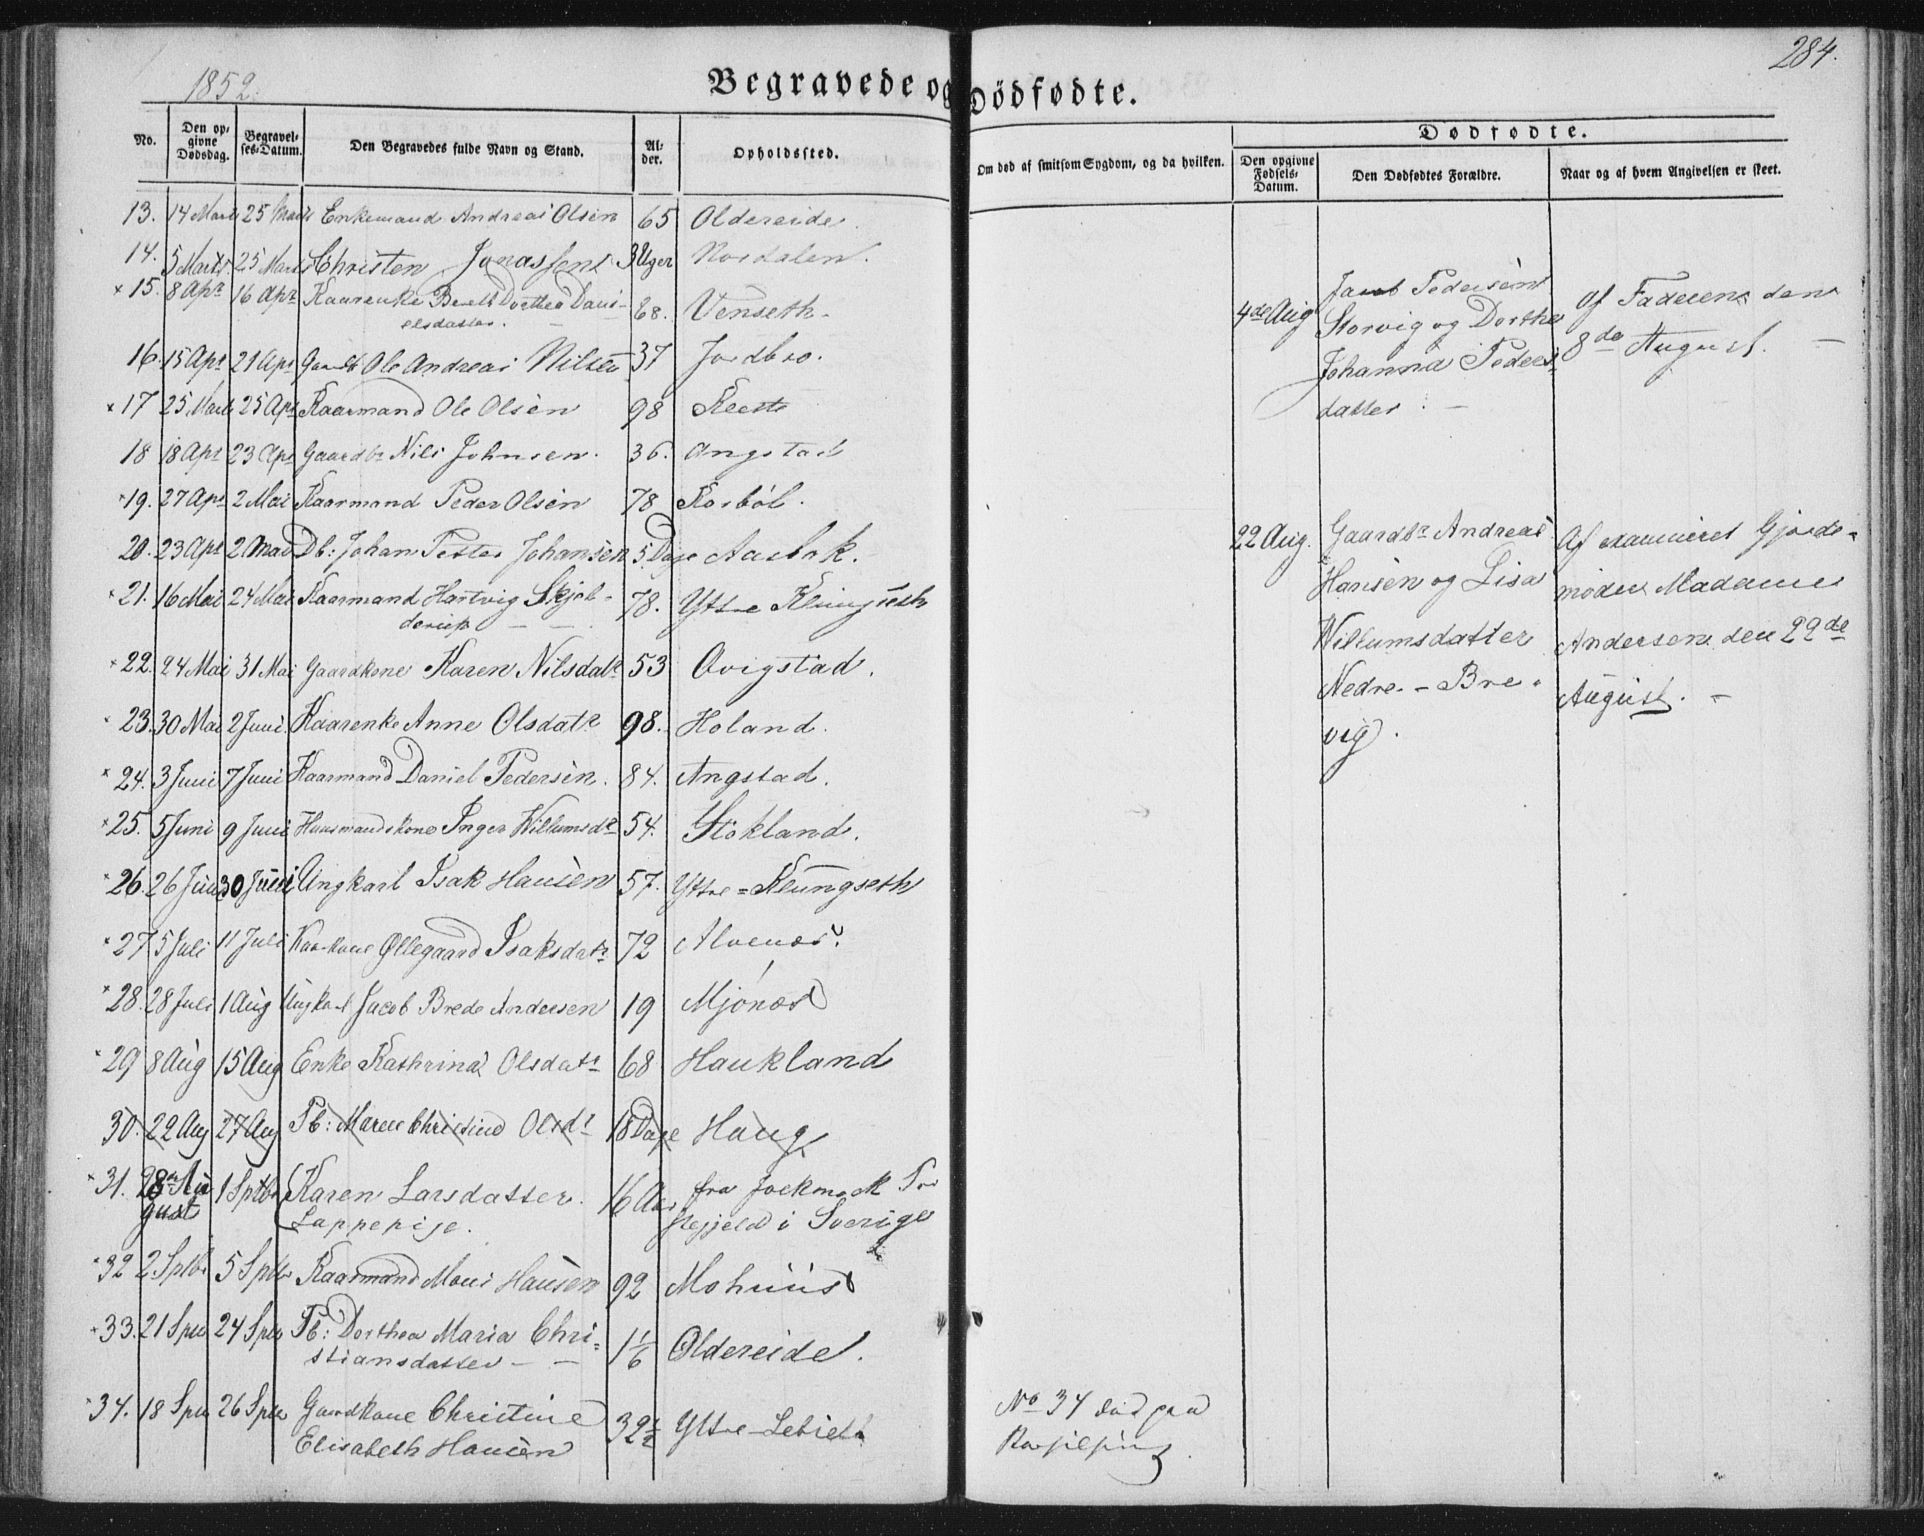 1852.
Begravede og Dödfødte.
284.
No.
Den opgivne Dødsdag.
Begravelses-Datum.
Den Begravedes fulde Navn og Stand.
Alder.
Opholdssted.
Om død af smitsom Sygdom, og da hvilken.
Dødfødte.
Den opgivne Fødsels-Datum.
Den Dødfødtes Forældre.
Naar og af hvem Angivelsen er skeet.
13. 14 Marts 25 Marts Enkemand Andreas Olsen 65 Oldereide
14. 5 Marts 25 Marts Christen Jonassen 3 Uger Nordalen.
× 15. 8 Apr 16 Apr Kaarenke Dorthea Dani-
elsdatter. 68. Venseth.
16. 15 Apr 21 Apr Ole Andreas Nilsen 37 Jordbro.
× 17 25 Marts 25 Apr Kaarmand Ole Olsen 98
18 18 Apr 23 Apr Gaardbr Nils Johnsen. 36. Angstad
× 19. 27 Apr 2 Mai Kaarmand Peder Olsen 78 Kosböl.
20. 23 Apr 2 Mai Db: Johan Petter Johansen 5 Dage
× 21. 16 Mai 24 Mai Kaarmand Hartvig Skjel-
derup 78. Yttre Klungseth
× 22. 24 Mai 31 Mai Gaardkone Karen Nilsdatr 53 Qvigstad.
× 23. 30 Mai 2 Juni Kaarenke Anne Olsdatr 98. Holand.
× 24. 3 Juni 7 Juni Kaarmand Daniel Pedersen. 84. Angstad.
× 25. 5 Juni 9 Juni Huusmandskone Inger Willumsdr 54. Stokland.
× 26. 26 Juni 30 Juni Ungkarl Isak Hansen 57. Yttre = Klungseth
× 27. 5 Juli 11 Juli Kaarkone Øllegaard Isaksdatr 72 Alvenes.
× 28. 28 Juli 1 Aug Ungkarl Jacob Brede Andersen 19 Mjönes
× 29 8 Aug 15 Aug Enke Kathrina Olsdatr 68 Haukland
30. 22 Aug 27 Aug Pb: Maren Christine Olsdr 18 Dage Haug
× 31. 28de Au-
gust 1 Sptbr Karen Larsdatter. 16 Aar fra Jockmock
Lappepige. i Sverige
× 32 2 Sptbr 5 Sptbr Kaarmand Mons Hansen 92 Mohuus
× 33. 21 Sptbr 24 Sptbr Pb: Dorthea Maria Chri-
stiansdatter 1 1/6 Oldereide.
× 34. 18 Sptbr 26 Sptbr Gaardkone Christine
Elisabeth Hansen 32 1/2 Yttre
4de Aug Jacob Pedersen
Storvig og Dorthe
Johanna Peders-
datter.
Af Faderen den
8de August.
22 Aug. Gaardbr Andreas
Hansen og Lisa
Willumsdatter
Nedre - Bre-
vig.
Af examineret Gjorde-
moder Madame
Andersen den 22de
August.
No 34 død paa